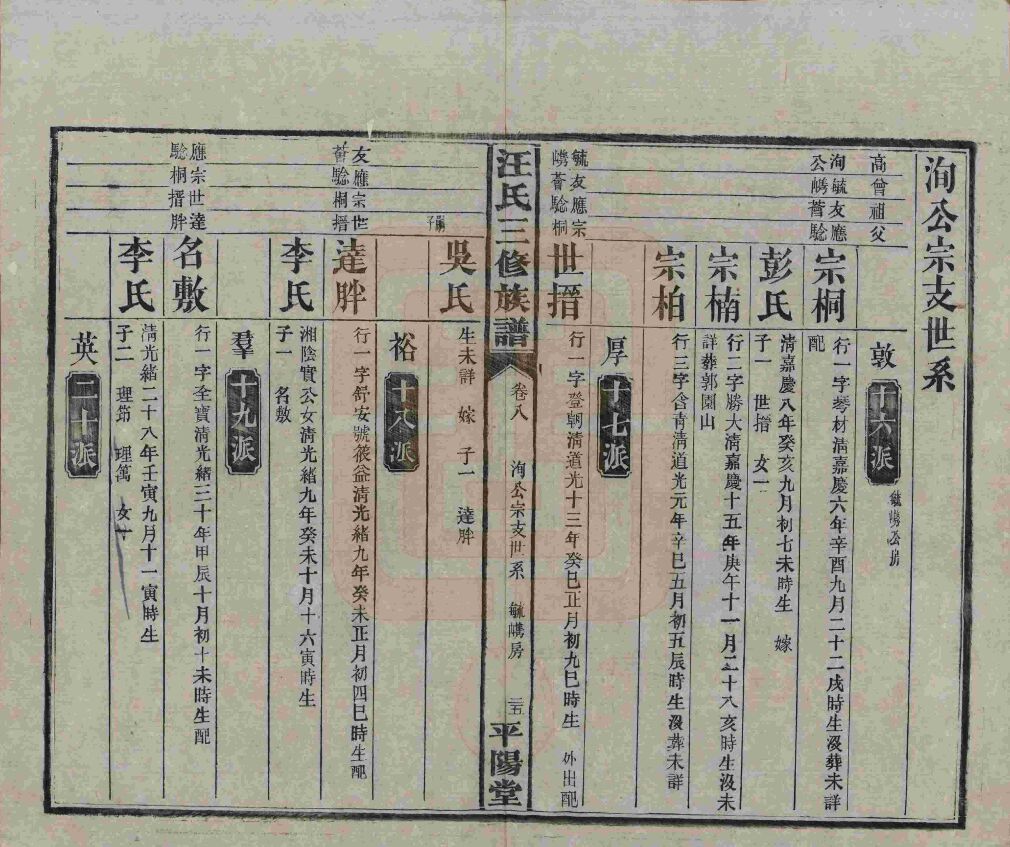 洵公宗支世系
高曾祖父
敦
十六派
毓㠾公房
洵毓友應
公㠾薈騐
宗桐
行一字琴材清嘉慶六年辛酉九月二十二戌時生沒葬未詳
配
彭氏
清嘉慶八年癸亥九月初七未時生 嫁
子一 世搢 女一
宗楠
行二字勝大清嘉慶十五年庚午十一月二十八亥時生沒未
詳葬郭園山
宗柏
行三字含青清道光元年辛巳五月初五辰時生沒葬未詳
厚
十七派
毓友應宗
㠾薈騐桐
世搢
行一字登朝清道光十三年癸巳正月初九巳時生 外出配
汪氏三修族譜
卷八 洵公宗支世系 毓㠾房 二五
平陽堂
嗣子
吳氏
生未詳 嫁 子一 達胖
裕
十八派
友應宗世
薈騐桐搢
達胖
行一字舒安號筱益清光緒九年癸未正月初四巳時生配
李氏
湘陰實公女清光緒九年癸未十月十六寅時生
子一 名敷
羣
十九派
應宗世達
騐桐搢胖
名敷
行一字全寶清光緒三十年甲辰十月初十未時生配
李氏
清光緒二十八年壬寅九月十一寅時生
子二 理筎 理篤 女一
英
二十派